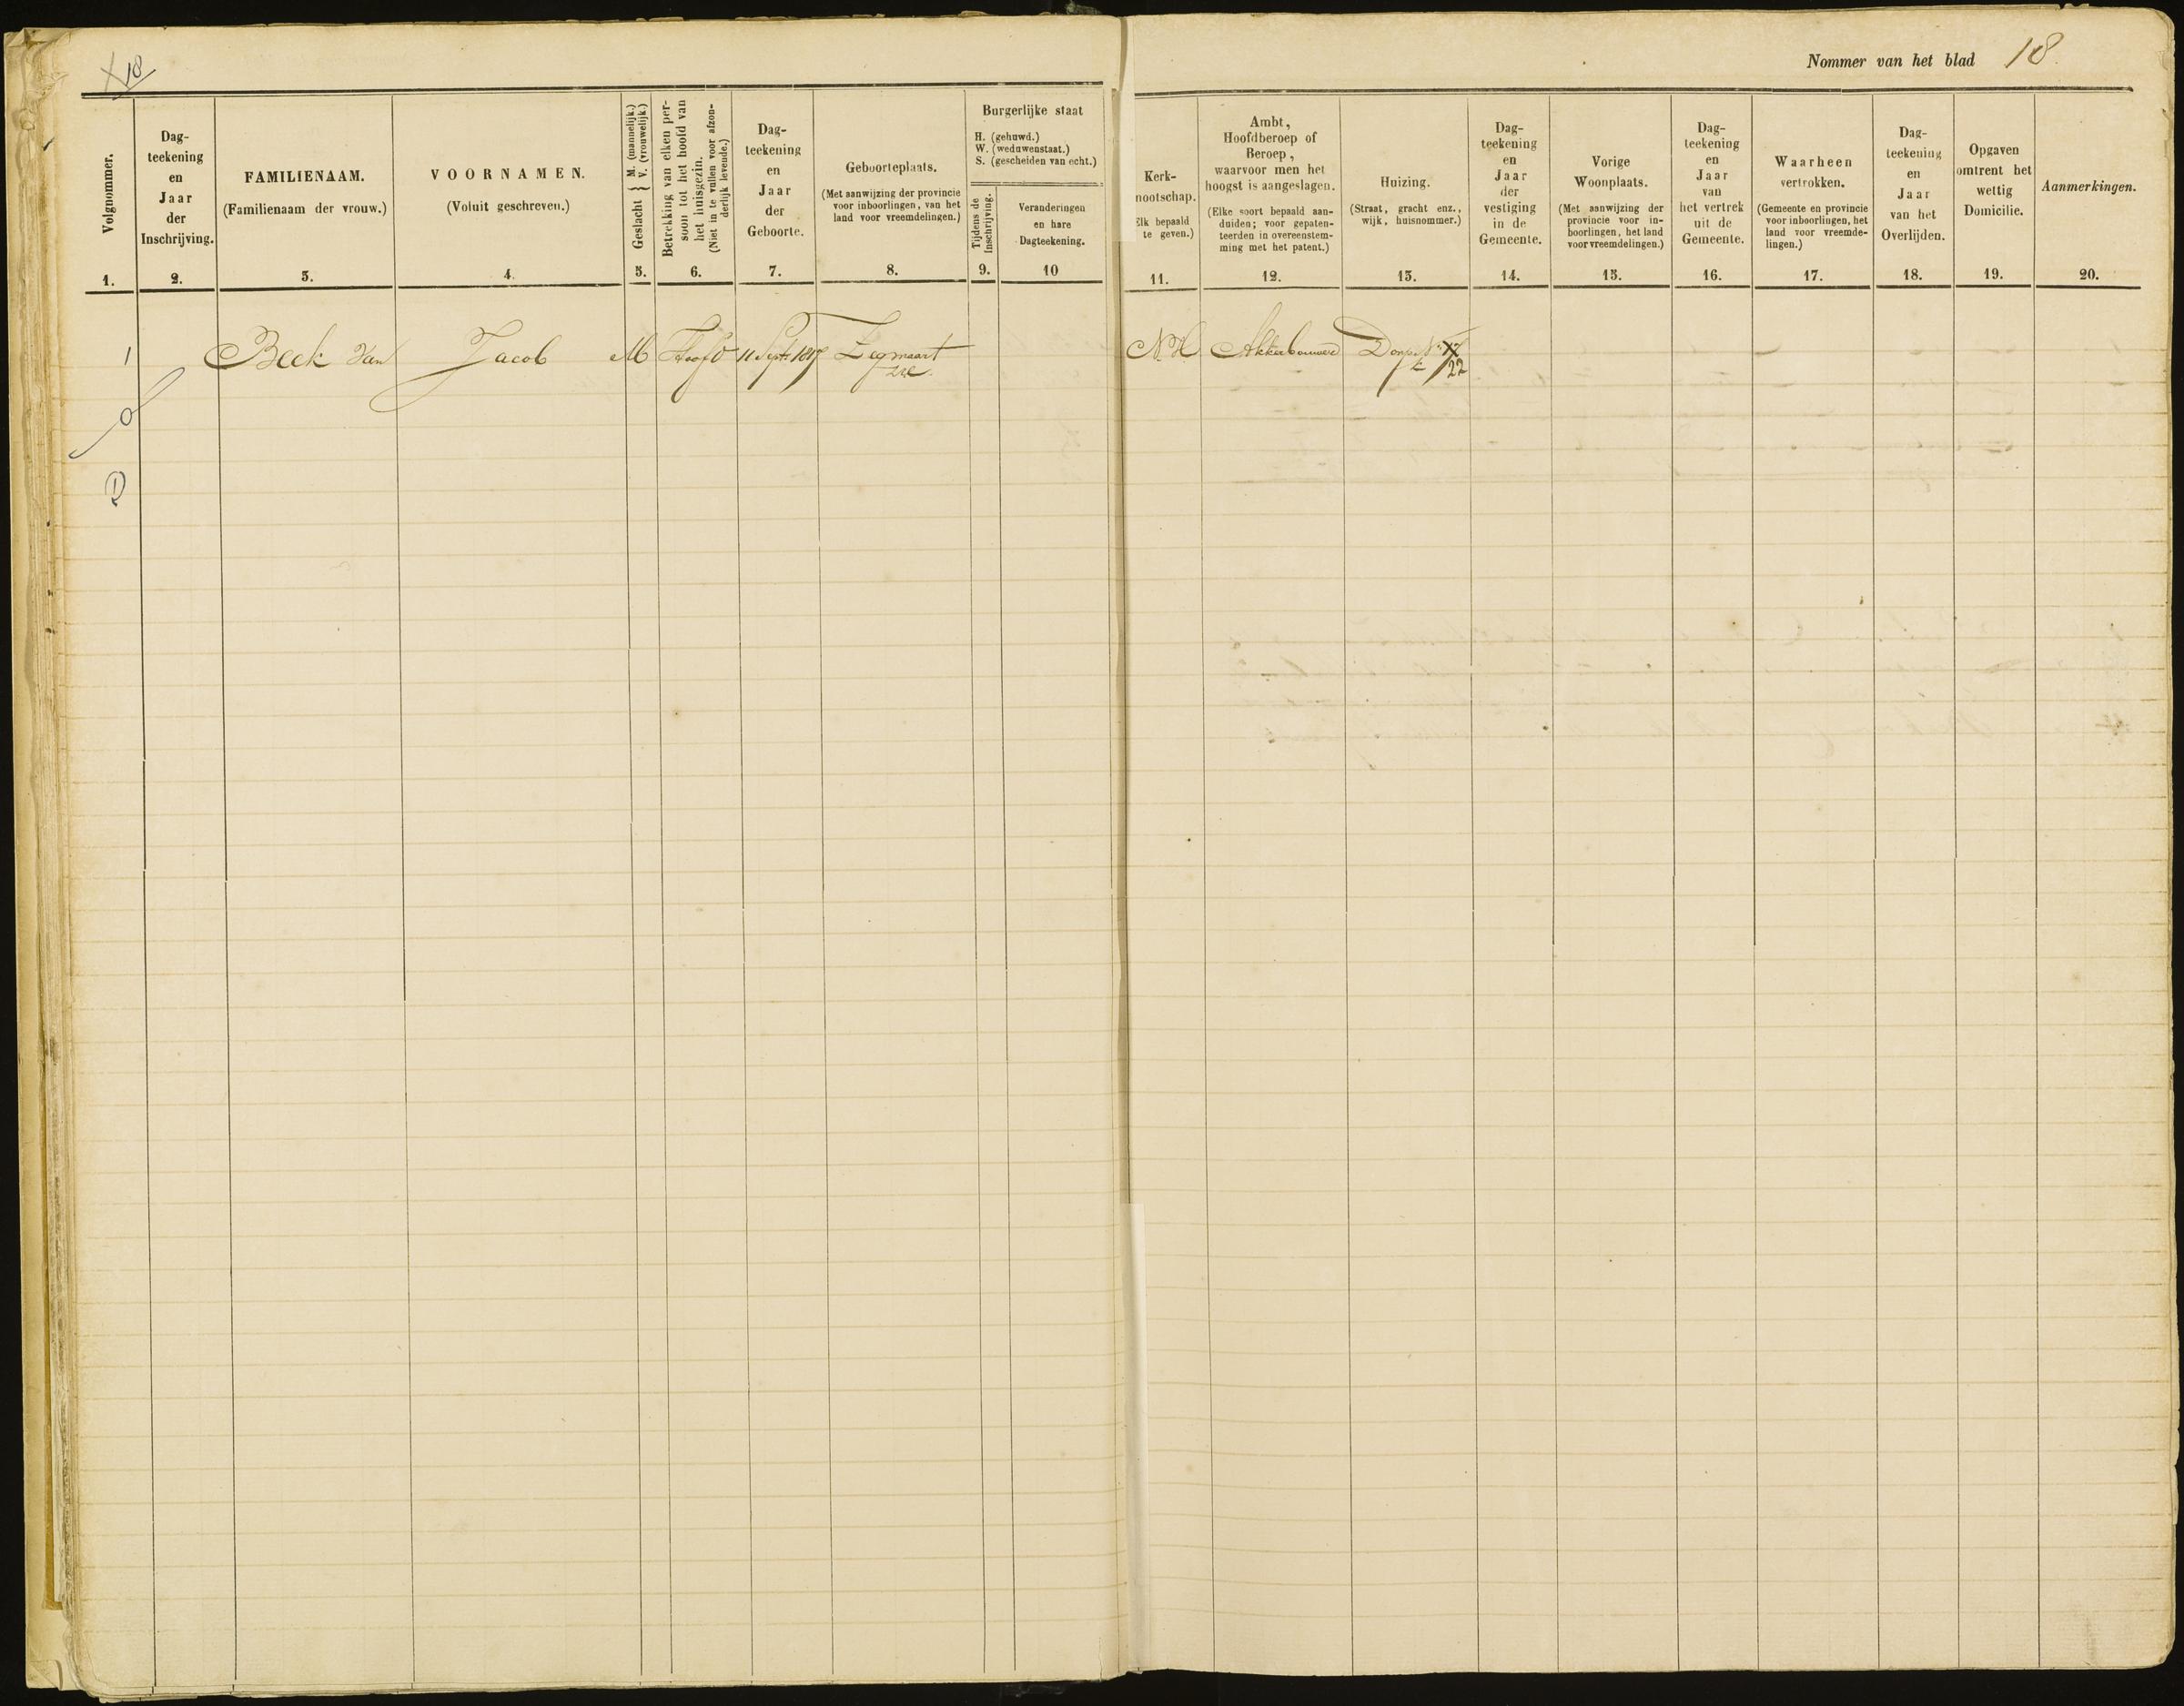 18
Nommer van het blad 18.
Volgnommer.
1.
Dag-
teekening
en
Jaar
der
Inschrijving.
2.
FAMILIENAAM.
(Familienaam der vrouw.)
3.
VOORNAMEN.
(Voluit geschreven.)
4.
Geslacht { M. (mannelijk.)
V. (vrouwelijk.)
5.
Betrekking van elken per-
soon tot het hoofd van
het huisgezin.
(Niet in te vullen voor afzon-
derlijk levende.)
6.
Dag-
teekening
en
Jaar
der
Geboorte.
7.
Geboorteplaats.
(Met aanwijzing der provincie
voor inboorlingen, van het
land voor vreemdelingen.)
8.
Burgerlijke staat
H. (gehuwd.)
W. (weduwenstaat.)
S. (gescheiden van echt.)
Tijdens de
Inschrijving.
9.
Veranderingen
en hare
Dagteekening.
10
Kerk-
nootschap.
Elk bepaald
te geven.)
11.
Ambt,
Hoofdberoep of
Beroep,
waarvoor men het
hoogst is aangeslagen.
(Elke soort bepaald aan-
duiden; voor gepaten-
teerden in overeenstem-
ming met het patent.)
12.
Huizing.
(Straat, gracht enz.,
wijk, huisnommer.)
13.
Dag-
teekening
en
Jaar
der
vestiging
in de
Gemeente.
14.
Vorige
Woonplaats.
(Met aanwijzing der
provincie voor in-
boorlingen, het land
voor vreemdelingen.)
15.
Dag-
teekening
en
Jaar
van
het vertrek
uit de
Gemeente.
16.
Waarheen
vertrokken.
(Gemeente en provincie
voor inboorlingen, het
land voor vreemde-
lingen.)
17.
Dag-
teekening
en
Jaar
van het
Overlijden.
18.
Opgaven
omtrent het
wettig
Domicilie.
19.
Aanmerkingen.
20.
1 Beek Van Jacob M Hoofd 11 Sept. 1817 Zegwaart NH Akkerbouwer
22